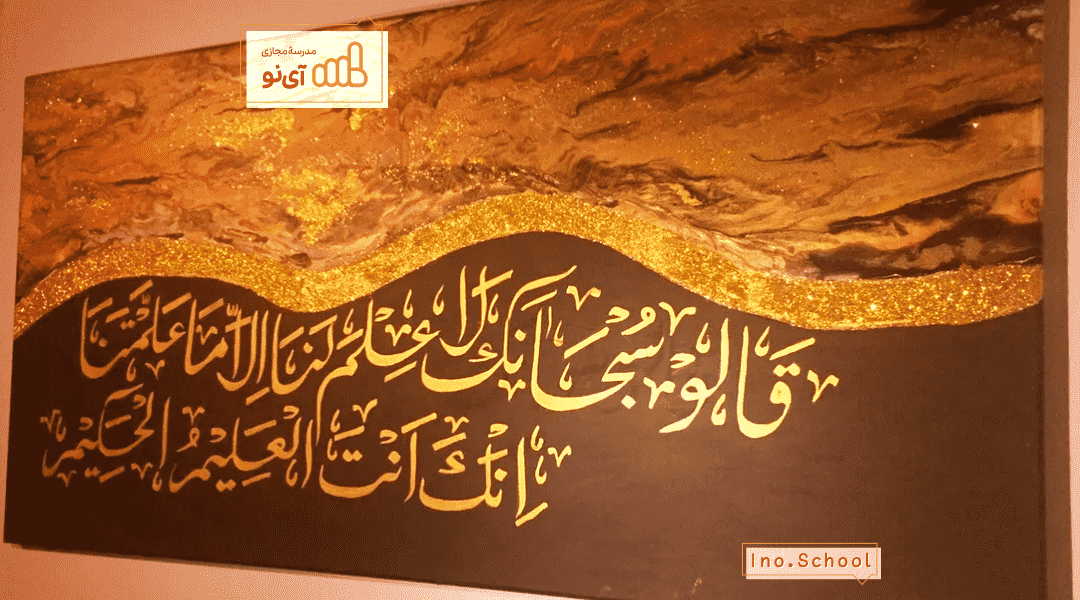 مدرسهٔ مجازی
آی‌نو
قَالوُ سُبحَانَكَ لَا عِلمَ لَنَا اِلاَّ مَا عَلَّمتَنَا
اِنَّكَ اَنتَ العَلِیمُ الحَكِیمُ
Ino.School